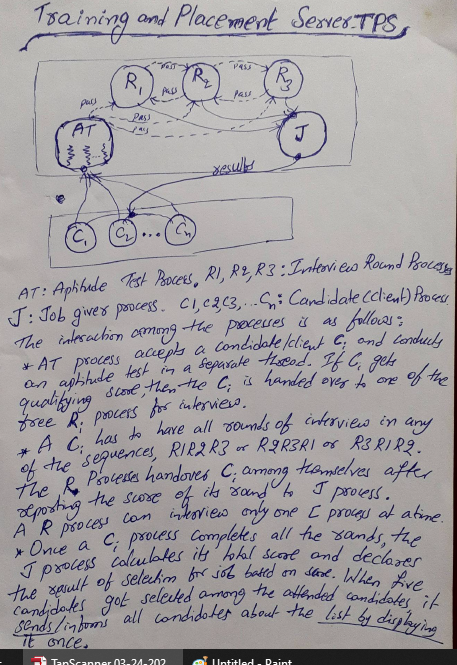 Training and Placement Server-TPS
R1
pass
R2
pass
R3
pass
pass
pass
pass
pass
AT
J
results
C1
C2
...
Cn
AT: Aptitude Test Process, R1, R2, R3: Interview Round Processes
J: Job giver process. C1, C2, C3, ... Cn: Candidate (Client) Process
The interaction among the processes is as follows:
* AT process accepts a candidate/client Ci and conducts
an aptitude test in a separate thread. If Ci gets
qualifying score, then the Ci is handed over to one of the
free Ri process for interview.
* A Ci has to have all rounds of interview in any
of the sequences, R1R2R3 or R2R3R1 or R3R1R2.
The R Processes handover Ci among themselves after
reporting the score of its round to J process.
A R process can interview only one C process at a time.
* Once a Ci process completes all the rounds, the
J process calculates its total score and declares
the result of selection for job based on score. When five
candidates got selected among the attended candidates it
sends/informs all candidates about the list by displaying
it once.
TapScanner 03-24-202
Untitled - Paint